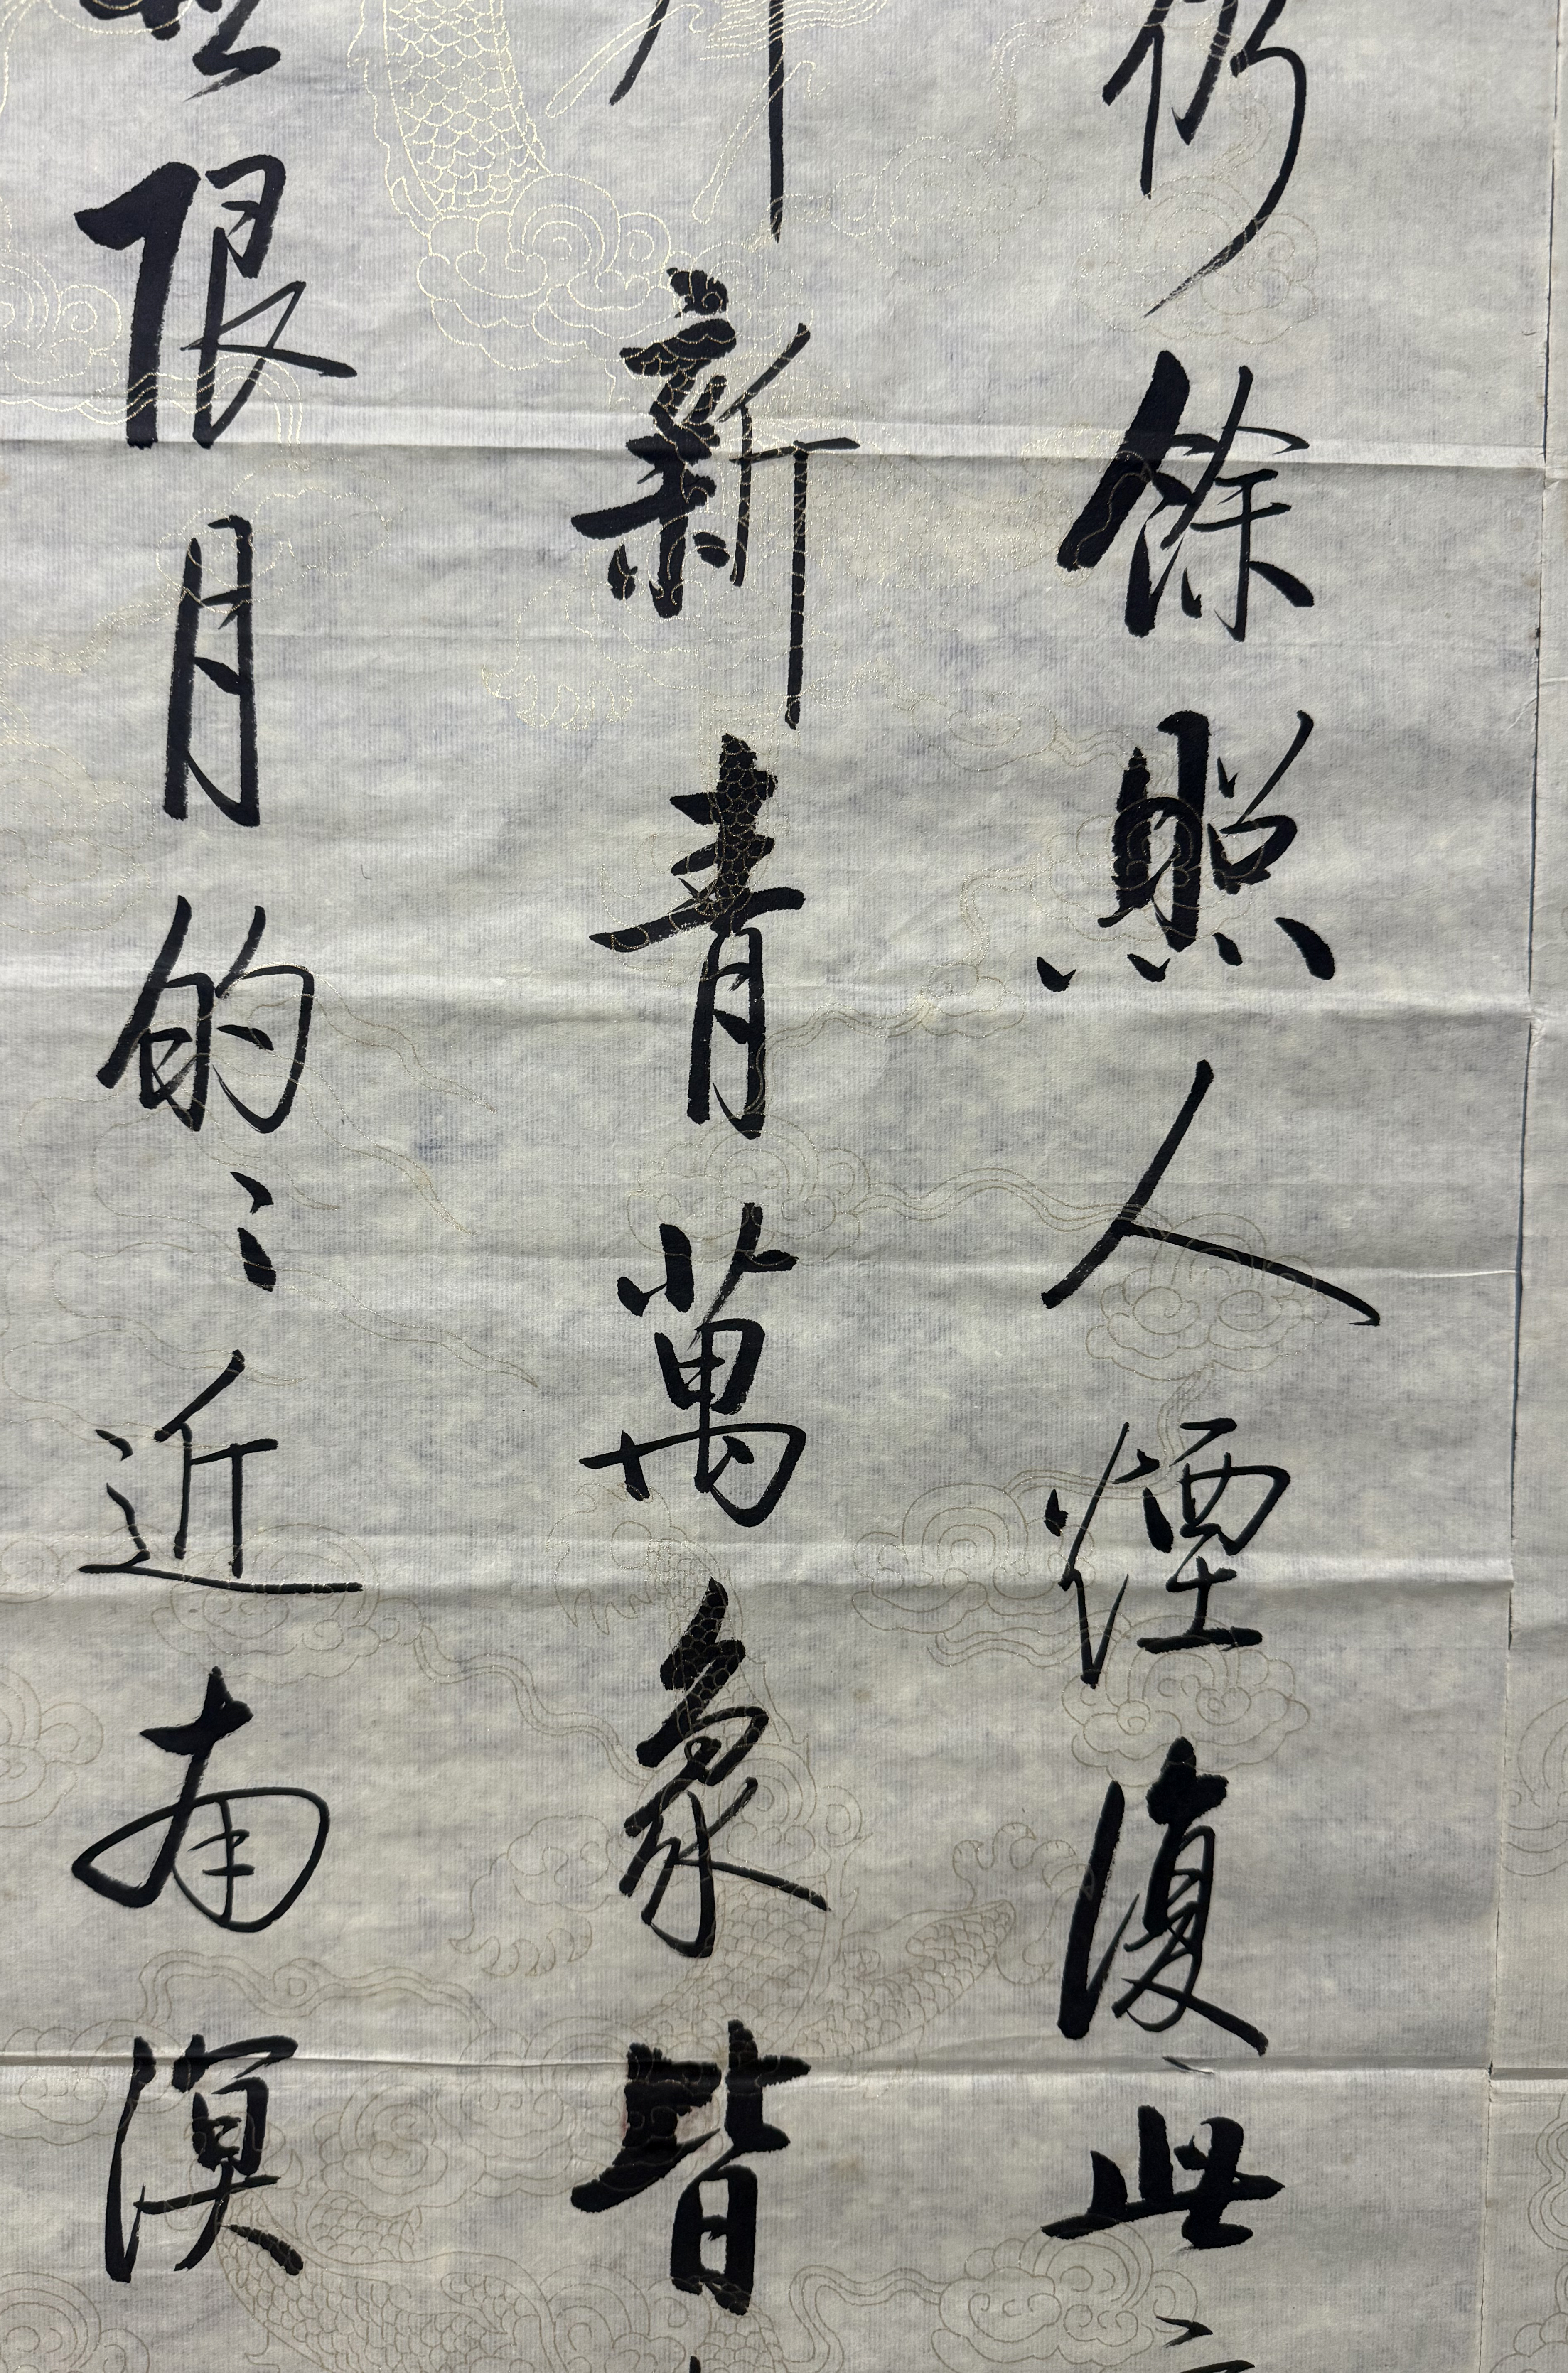 仍餘照人煙復此
新青萬象皆
限月的〻近南溟